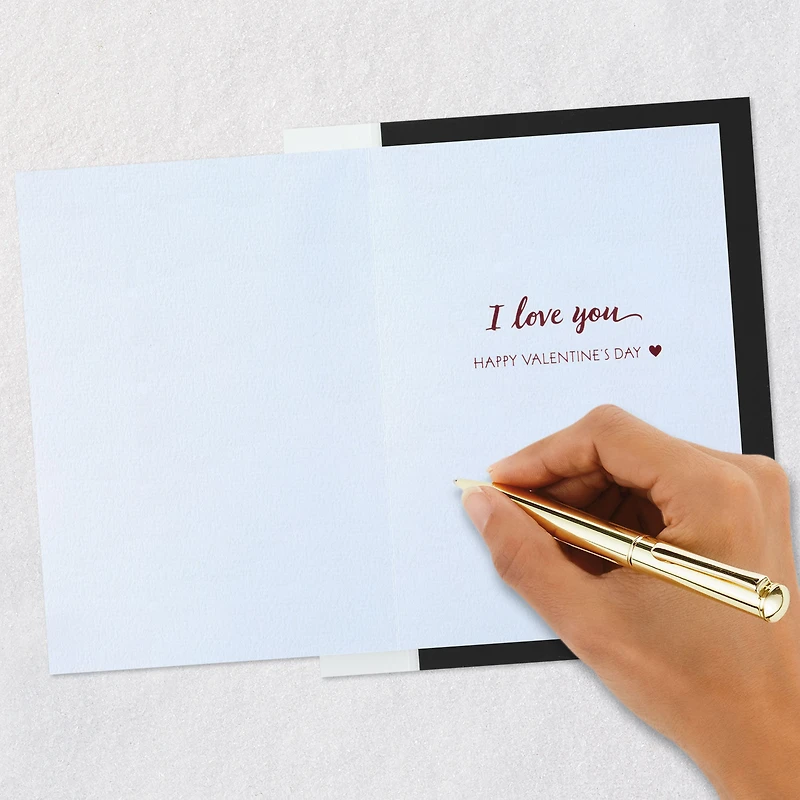 I love you
HAPPY VALENTINE'S DAY